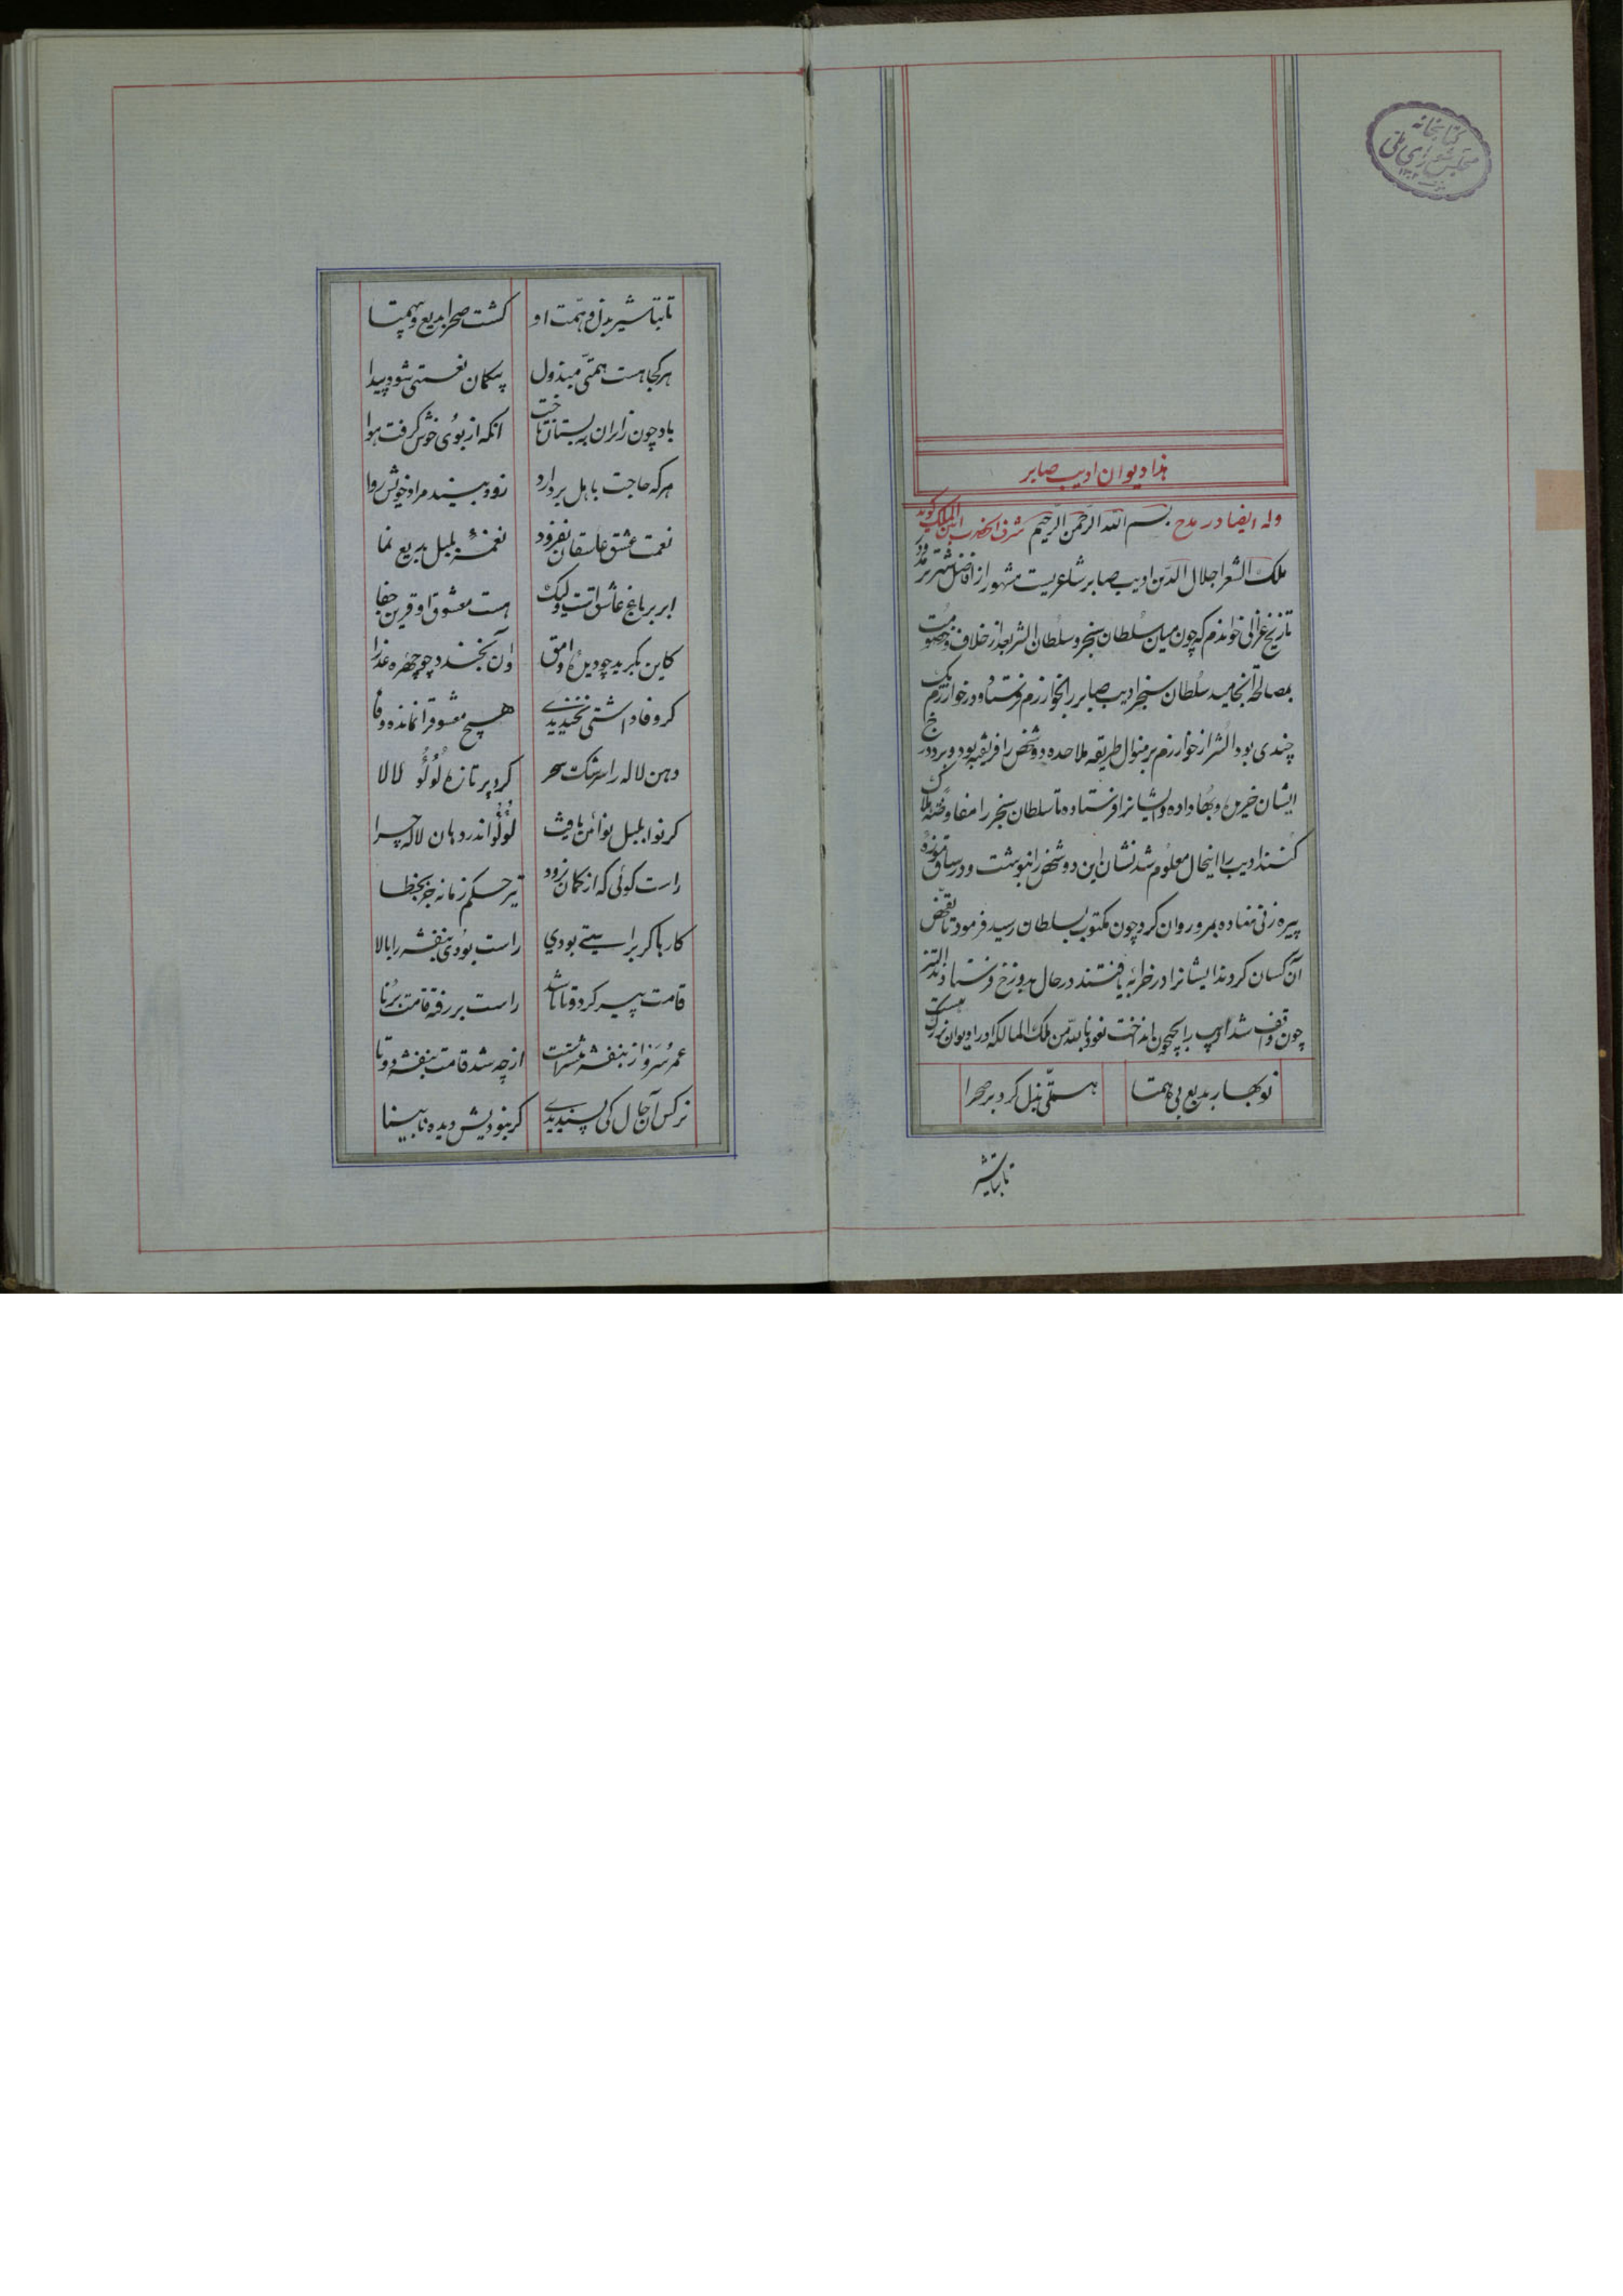 کتابخانه
مجلس شورای ملی
۱۳۰۲
هذا دیوان ادیب صابر
وله ایضا در مدح بسم الله الرحمن الرحیم شرف
ملک الشعرا جلال الدین ادیب صابر شاعریست مشهور از افاضل شهر ترمد و در
تاریخ غزالی خواندم که چون میان سلطان سنجر و سلطان السر بعد از خلاف و خصومت
بمصالحه انجامید سلطان سنجر ادیب صابر را بخوارزم فرستاد و در خوارزم یک
چندی بود السر از خوارزم بر منوال طریقه ملاحده دو شخص را فریفته بود و بر دو خرج
ایشان خیرین و بها داده و ایشانرا فرستاده تا سلطان سنجر را مفاوضه هلاک
کنند ادیب را اینحال معلوم شد نشان این دو شخص را بنوشت و در ساق موزهٔ
پیره زنی نهاده بمرو روان کرد چون مکتوب بسلطان رسید فرمود تا تفحص
آن کسان کردند ایشانرا در خرابه یافتند در حال بدوزخ فرستادند السز
چون واقف شد ادیب را بجیحون انداخت نعوذ بالله من ملک الممالک او را دیوان بزرگ هست
نوبهار بدیع بی همتا
همتی بذل کرد بر صحرا
تابتاشیر
تا بتاشیر بذل و همت او کشت صحرا بدیع و بیهمتا
هرکجا هست همتی مبذول بیکمان نعمتی شود پیدا
باد چون زایران به بستان تاخت آنکه از بوی خوش کرفت هوا
هرکه حاجت باهل بر دارد زود بیند مراد خویش روا
نعمت عشق عاشقان بفزود نغمهٔ بلبل بدیع نما
ابر بر باغ عاشق است ولیک هست معشوق او قرین جفا
کاین بکرید چو دیدهٔ وامق وان بخندد چو چهره عذرا
کر وفا داشتی نخندیدی هیچ معشوق را نمانده وفا
دهن لاله را سرشک سحر کرد پر تازه لؤلؤ لالا
کر نوا بلبل نوائن یافت لؤلؤ اندر دهان لاله چرا
راست کوئی که از کمان نرود تیر حکم زمانه جز بخطا
کارها کر براستی بودی راست بودی بنفشه را بالا
قامت پیر کر دوتا باشد راست بر رفته قامت برنا
عمر سرو از بنفشه بیشتر است از چه شد قامت بنفشه دوتا
نرکس آن جمال کی پسندیدی کر نبودیش دیده نابینا